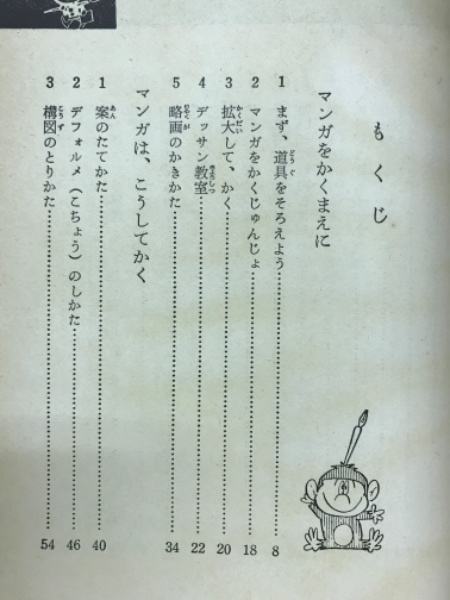 もくじ
マンガをかくまえに
1 まず、道具をそろえよう 8
2 マンガをかくじゅんじょ 18
3 拡大して、かく 20
4 デッサン教室 22
5 略画のかきかた 34
マンガは、こうしてかく
1 案のたてかた 40
2 デフォルメ(こちょう)のしかた 46
3 構図のとりかた 54